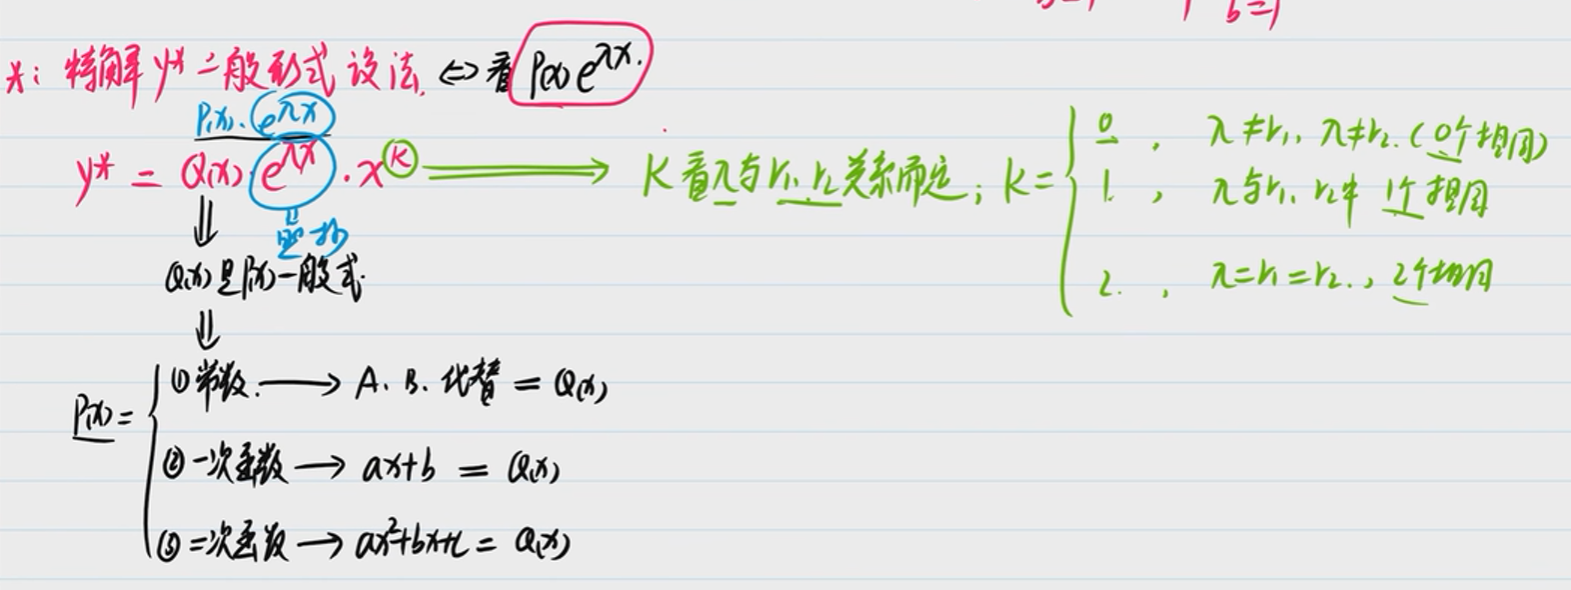 b=1
*: 特解 y* 一般形式 设法. ⇔ 看 P(x)e^λx.
P(x)·e^λx
y* = Q(x)·e^λx·x^k ⟹ K看λ与r₁, r₂关系而定; K= { 0, λ≠r₁, λ≠r₂. (0个相同)
1, λ与r₁, r₂中 1个相同
2., λ=r₁=r₂., 2个相同
⇓ 照抄
Q(x)是P(x)一般式.
⇓
P(x)= { ①常数. ⟶ A. B. 代替 = Q(x)
②一次函数 ⟶ ax+b = Q(x)
③二次函数 ⟶ ax²+bx+c = Q(x)